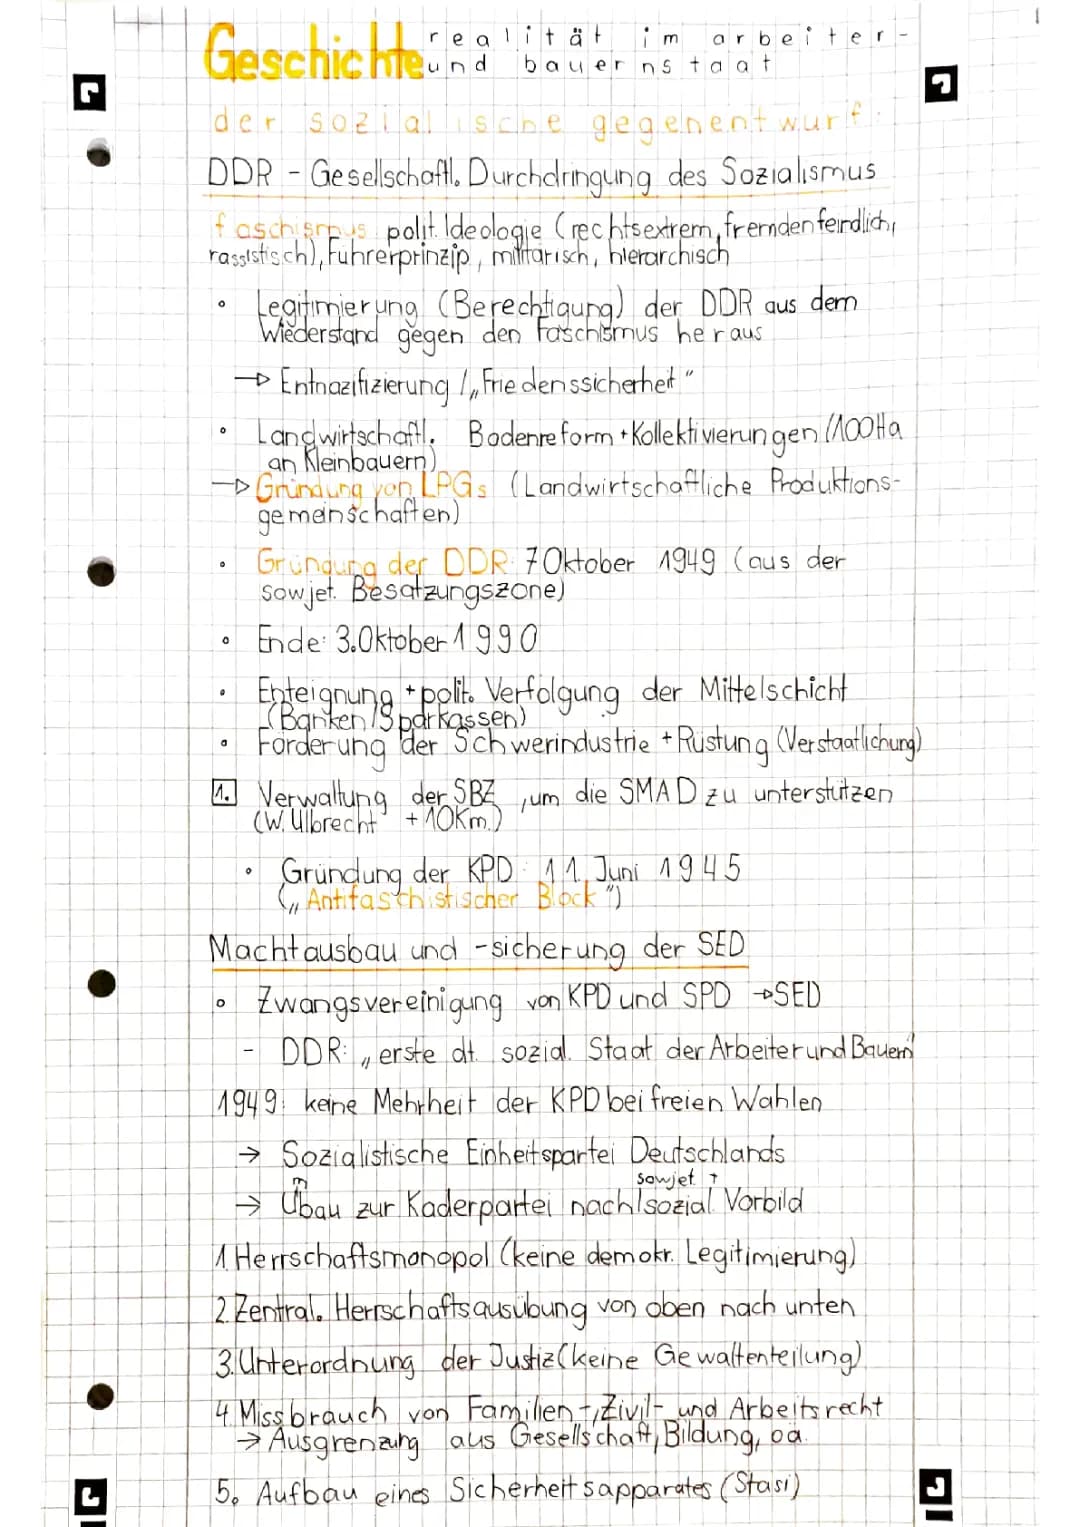 Geschichte realität im arbeiter-
und bauernstaat
der sozialistische gegenentwurf:
DDR - Gesellschaftl. Durchdringung des Sozialismus
faschismus: polit. Ideologie (rechtsextrem, fremdenfeindlich,
rassistisch), Führerprinzip, militärisch, hierarchisch
• Legitimierung (Berechtigung) der DDR aus dem
Wiederstand gegen den Faschismus heraus
→ Entnazifizierung / „Friedenssicherheit"
• Landwirtschaftl. Bodenreform + Kollektivierungen (100Ha
an Kleinbauern)
→ Gründung von LPGs (Landwirtschaftliche Produktions-
gemeinschaften)
• Gründung der DDR: 7 Oktober 1949 (aus der
sowjet. Besatzungszone)
• Ende: 3. Oktober 1990
• Enteignung + polit. Verfolgung der Mittelschicht
(Banken/Sparkassen)
• Förderung der Schwerindustrie + Rüstung (Verstaatlichung)
1. Verwaltung der SBZ, um die SMAD zu unterstützen
(W. Ulbrecht + 10Km.)
• Gründung der KPD: 11. Juni 1945
(„Antifaschistischer Block")
Machtausbau und -sicherung der SED
• Zwangsvereinigung von KPD und SPD → SED
- DDR: „erste dt. sozial. Staat der Arbeiter und Bauern"
1949: keine Mehrheit der KPD bei freien Wahlen
→ Sozialistische Einheitspartei Deutschlands
sowjet. +
→ Umbau zur Kaderpartei nach sozial. Vorbild
1. Herrschaftsmonopol (keine demokr. Legitimierung)
2. Zentral. Herrschaftsausübung von oben nach unten
3. Unterordnung der Justiz (keine Gewaltenteilung)
4. Missbrauch von Familien-, Zivil- und Arbeitsrecht
→ Ausgrenzung aus Gesellschaft, Bildung, oä.
5. Aufbau eines Sicherheitsapparates (Stasi)